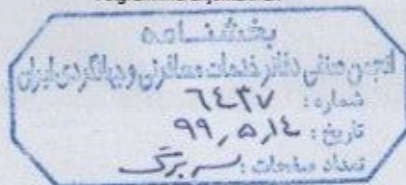 بخشنامه
انجمن صنفی دفاتر خدمات مسافرتی و جهانگردی ایران
شماره: ٦٤٣٧
تاریخ: ٩٩,٥,١٤
تعداد صفحات: سه برگ